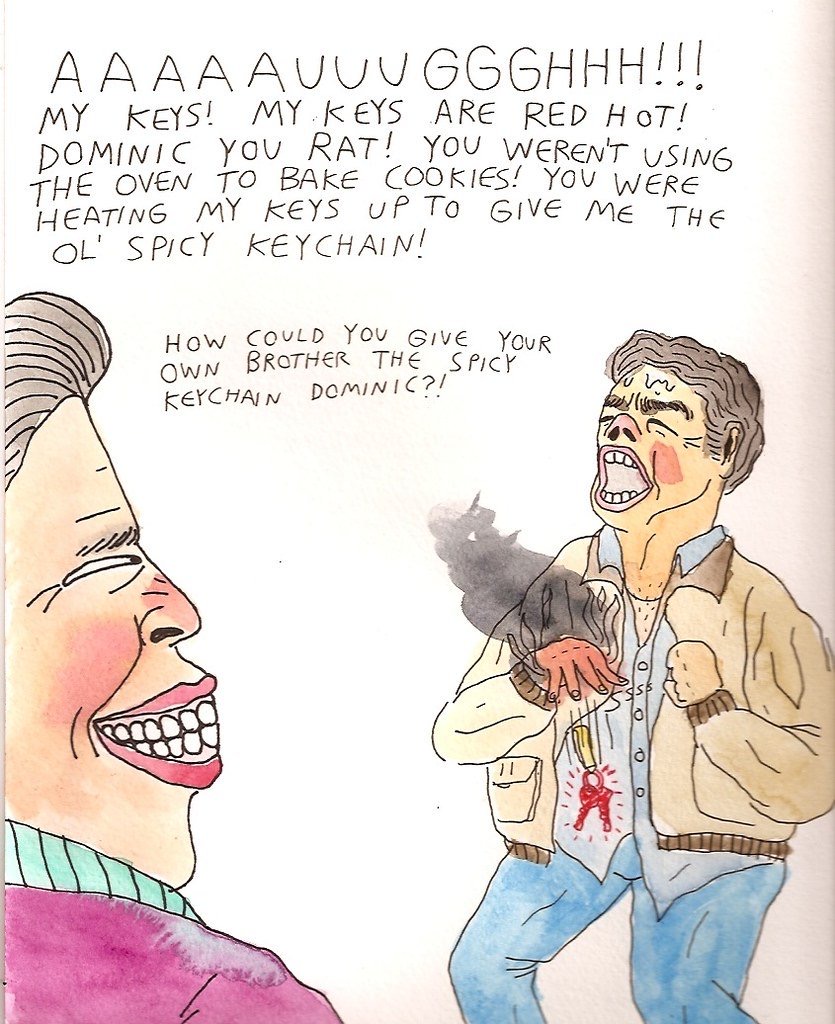 AAAAAUUUGGGHHH!!!
MY KEYS! MY KEYS ARE RED HOT!
DOMINIC YOU RAT! YOU WEREN'T USING
THE OVEN TO BAKE COOKIES! YOU WERE
HEATING MY KEYS UP TO GIVE ME THE
OL' SPICY KEYCHAIN!
HOW COULD YOU GIVE YOUR
OWN BROTHER THE SPICY
KEYCHAIN DOMINIC?!
SSSS